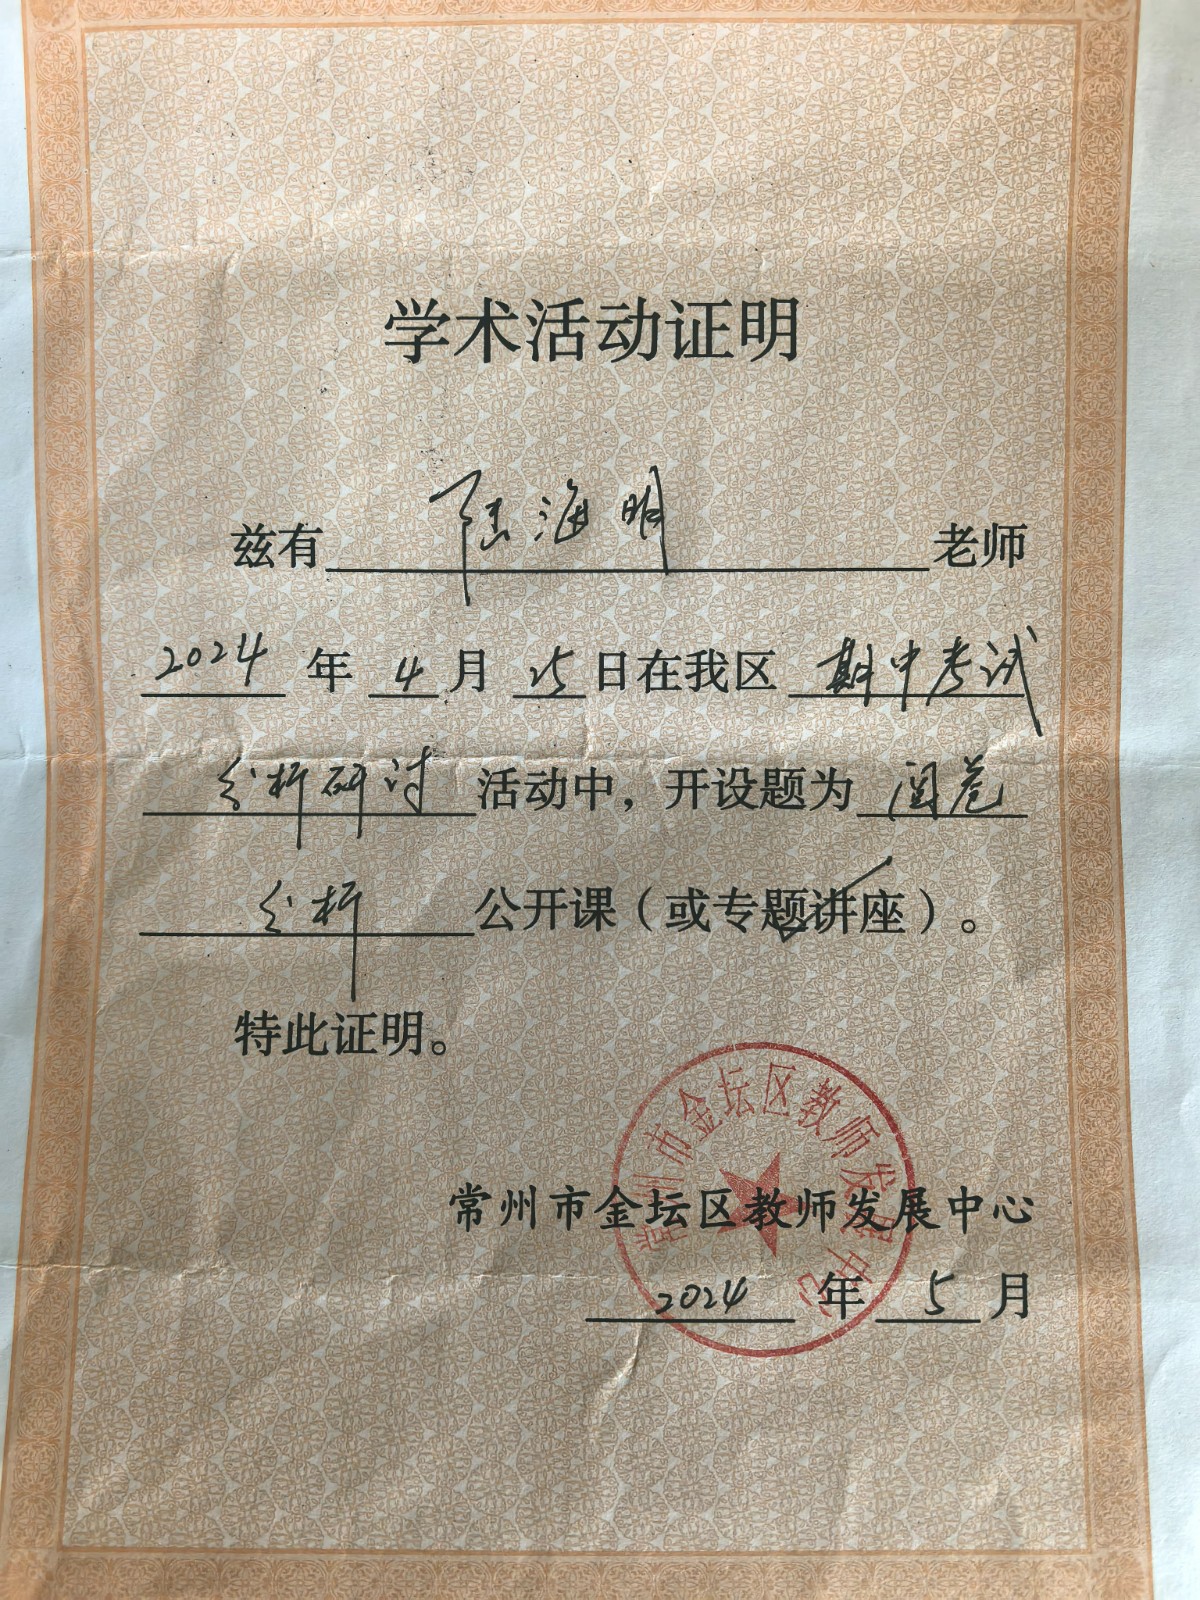 学术活动证明
兹有 陆海明 老师
2024 年 4 月 25 日在我区 期中考试
分析研讨 活动中，开设题为 阅卷
分析 公开课（或专题讲座）。
特此证明。
常州市金坛区教师发展中心
常州市金坛区教师发展中心
2024 年 5 月